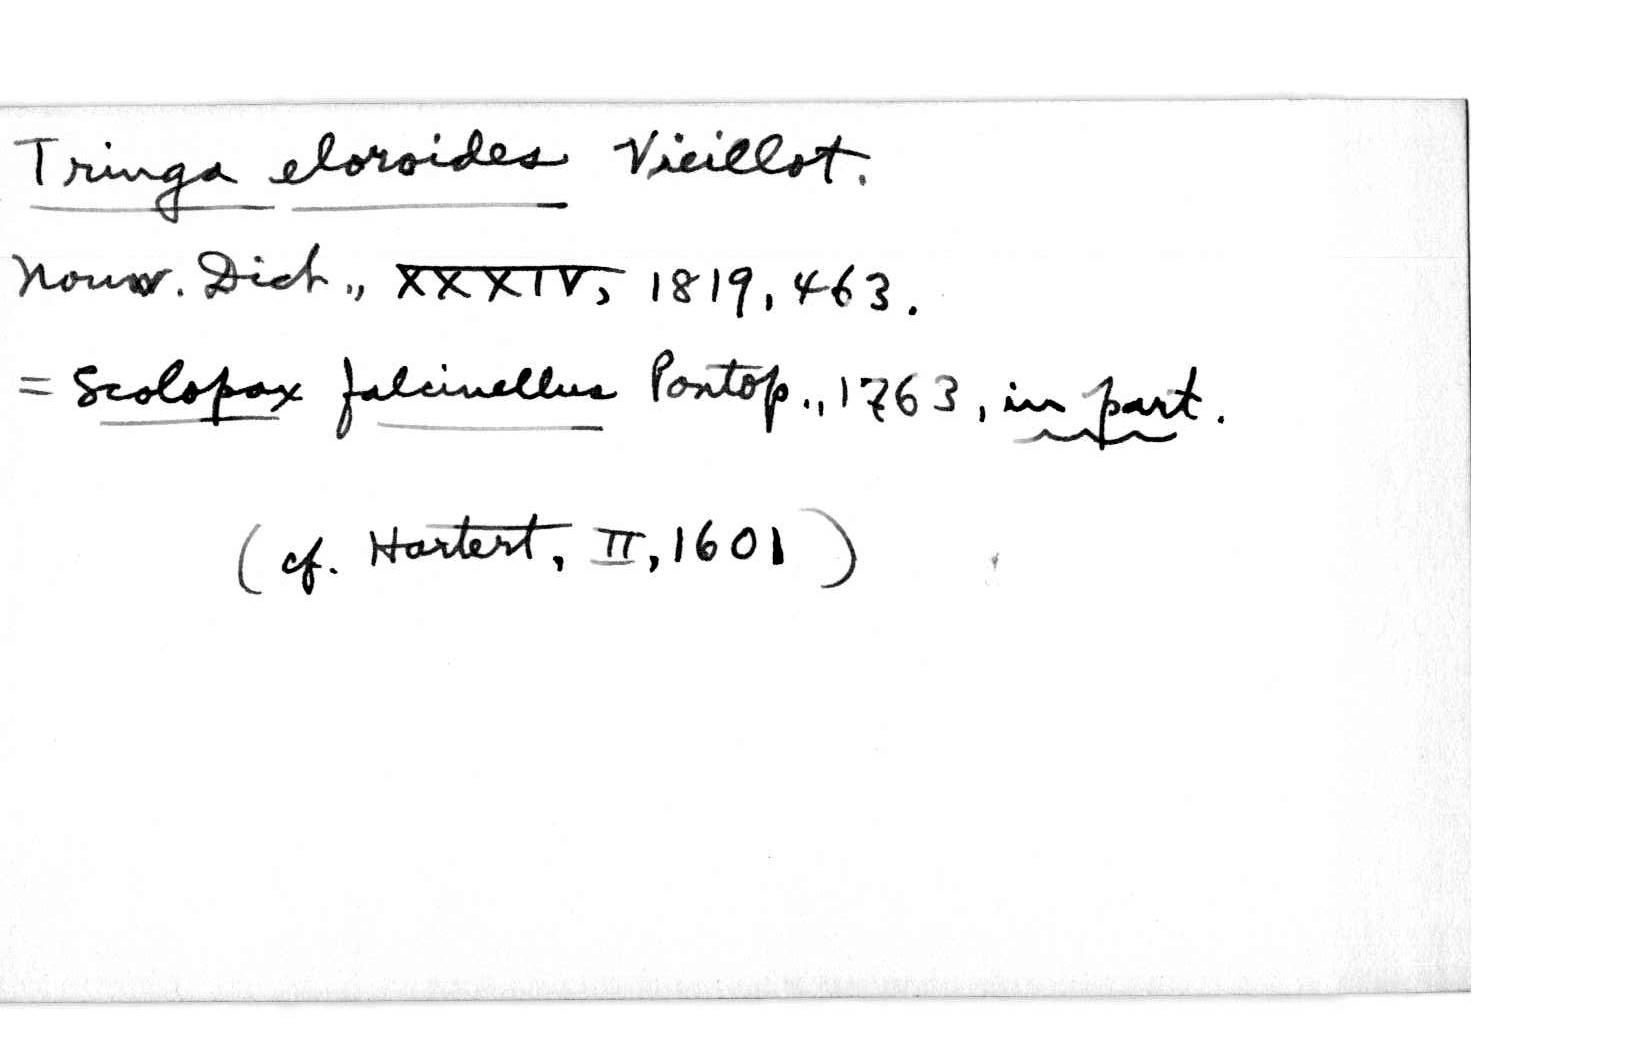 Tringa eloroides Vieillot.
Nouv. Dict., XXXIV, 1819, 463.
= Scolopax falcinellus Pontop., 1763, in part.
(cf. Hartert, II, 1601)